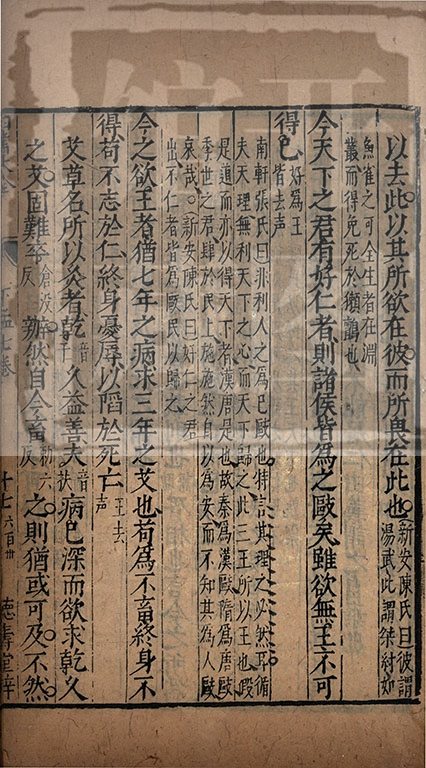 以去此以其所欲在彼而所畏在此也新安陳氏曰彼謂
湯武此謂桀紂如
魚雀之可全生者在淵
叢而得免死於獺鸇也
今天下之君有好仁者則諸侯皆為之敺矣雖欲無王不可
得已好為王
皆去声
南軒張氏曰非利人之為已敺也特言其理之必然耳循
夫天理無利天下之心而天下歸之此三王所以王也假
是道而亦以得天下者漢唐是也故秦為漢敺隋為唐敺
季世之君肆於民上施施然自以為安而不知其為人敺
哀哉○新安陳氏曰好仁之君
出不仁者皆為敺民以歸之
今之欲王者猶七年之病求三年之艾也苟為不畜終身不
得苟不志於仁終身憂辱以陷於死亡王去
声
艾草名所以灸者乾音干久益善夫音扶病已深而欲求乾久
之艾固難卒倉没反辦然自今畜勑六反之則猶或可及不然
下孟七卷
十七
六百卅
德壽堂梓